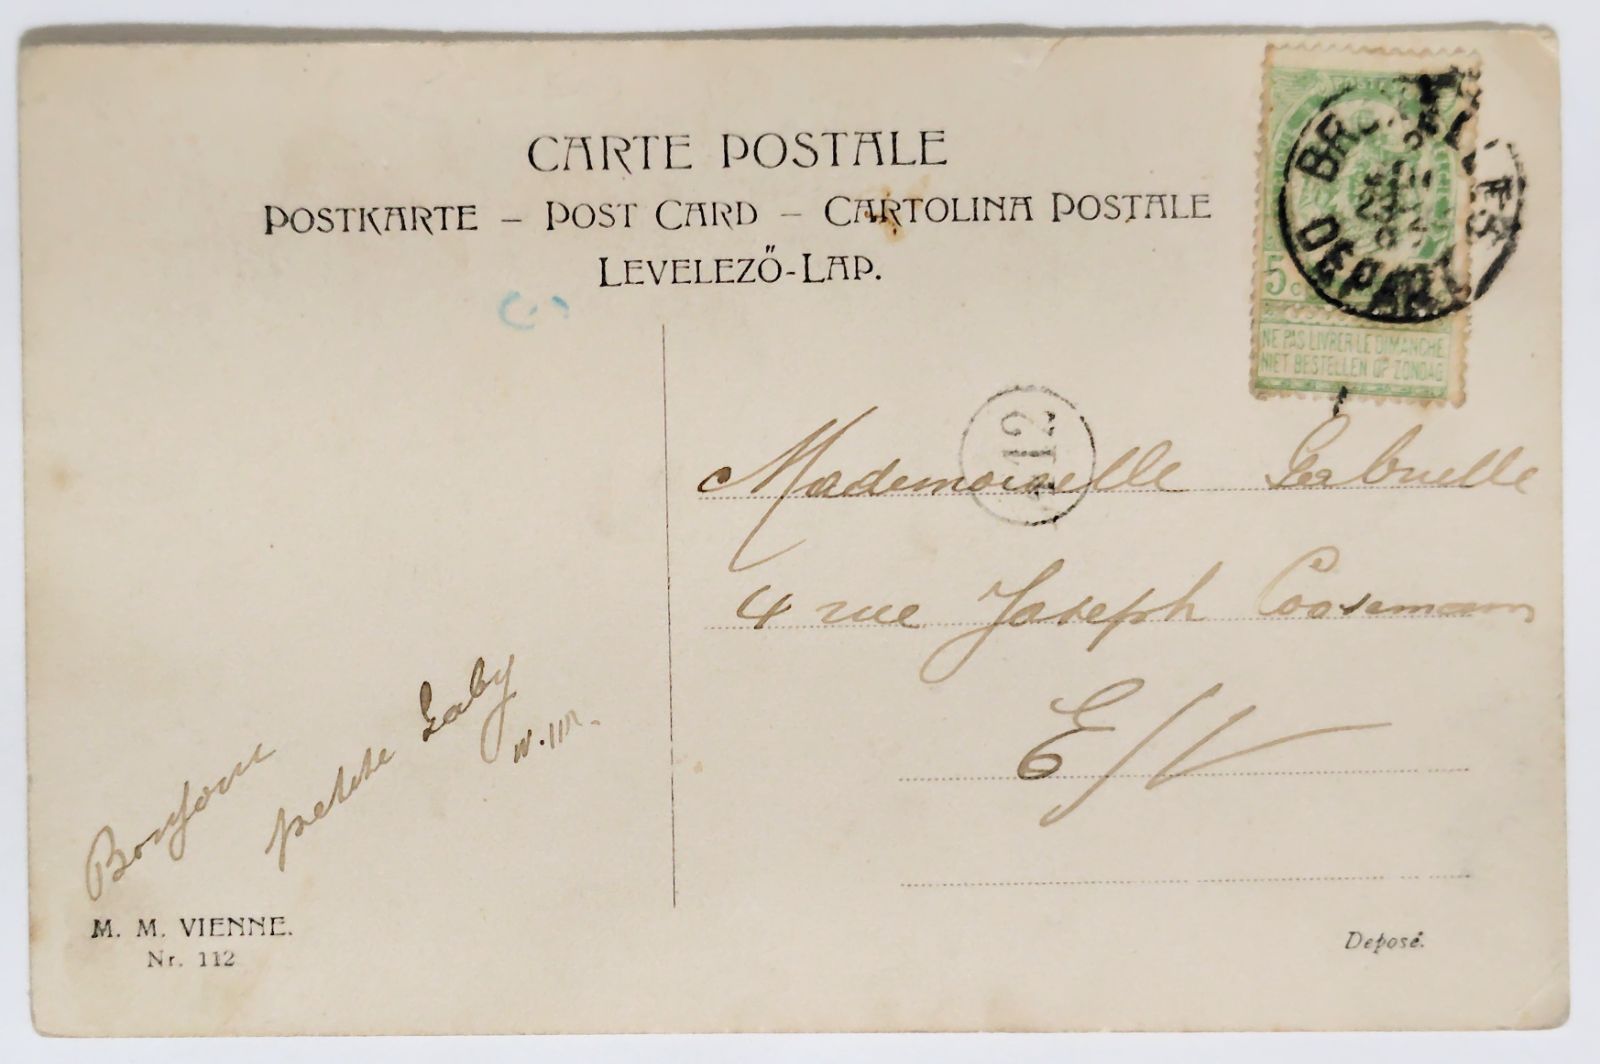 CARTE POSTALE
POSTKARTE – POST CARD – CARTOLINA POSTALE
LEVELEZŐ-LAP.
BRUXELLES
DEPART
5c
NE PAS LIVRER LE DIMANCHE
NIET BESTELLEN OP ZONDAG
112
Mademoiselle Gabrielle
4 rue Joseph Coosemans
E/V
Bonjour
petite Gaby
M. M. VIENNE.
Nr. 112
Deposé.